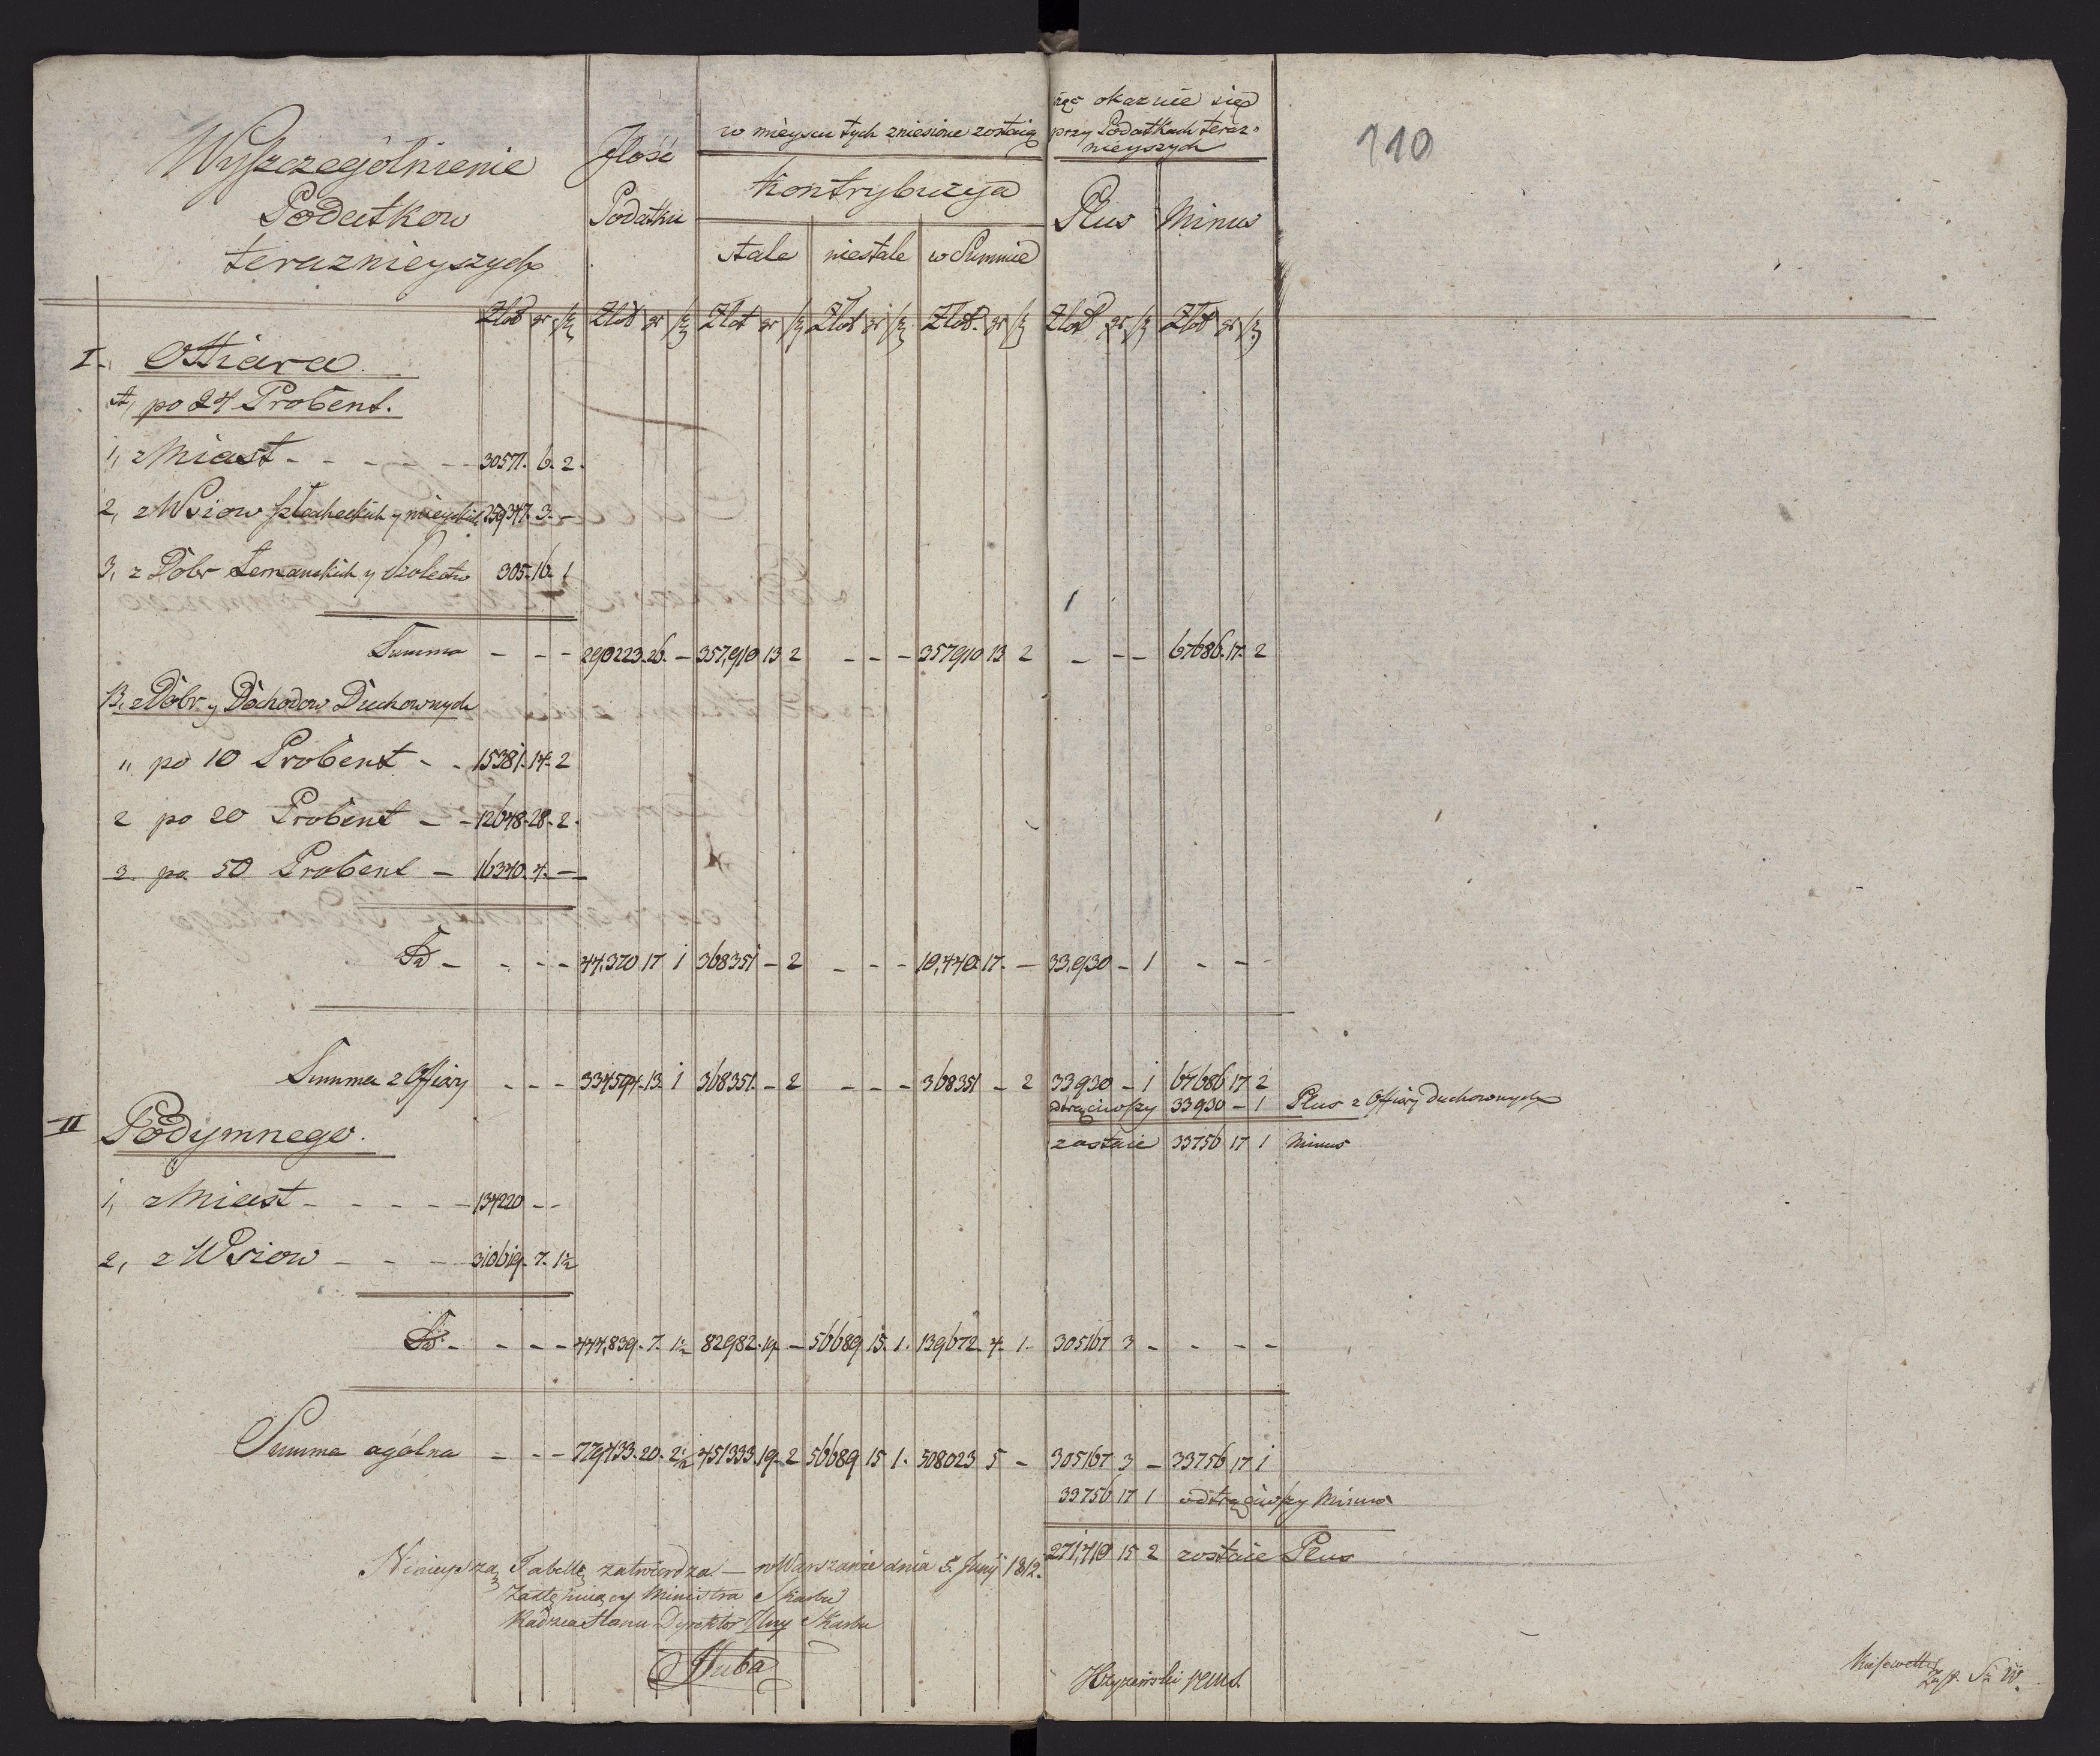 110
Wyszczegolnienie
Podatkow
teraznieyszych
Jlość
Podatku
w mieyscu tych zniesione zostaią
Kontrybucya
stałe niestałe w Summie
okazuie się
przy Podatkach teraz-
nieyszych
Plus Minus
Złot gr Złot gr Złot gr Złot gr Złot gr Złot gr Złot gr
I. Offiara
A, po 24 Procent.
1, z Miast - - - - - 30571. 6. 2.
2, z Wsiow szlacheckich y mieyskich 259347. 3. -
3, z Dobr Lemanskich y Szolectw 305. 16. 1
Summa - - - 290223. 26. - 357,910 13 2 - - - 357910 13 2 - - - 67686. 17. 2
B, z Dobr y Dochodow Duchownych
" po 10 Procent - - 15381. 14. 2
2 po 20 Procent - - 12648. 28. 2.
3. po 50 Procent - 16340. 4. -
Sa - - - - 44,370 17 1 368351 - 2 - - - 10,440. 17. - 33,930 - 1 - - -
Summa z Offiary - - - 334594. 13. 1 368351. - 2 - - - 368351 - 2 33930 - 1 67686 17 2
odtrąciwszy 33930 - 1 Plus z Offiary duchownych
zostaie 33756 17 1 Minus
II Podymnego.
1, z Miast - - - - - 134220 - -
2, z Wsiow - - - 310619. 7. 1½
Sa - - - - 444,839. 7. 1½ 82982. 19. - 56689 15. 1. 139672. 4. 1. 305167 3 - - - -
Summa ogólna - - - 779433. 20. 2½ 451333. 19. 2 56689 15 1. 508023 5 - 305167 3 - 33756 17 1
33756 17 1 odtrąciwszy Minus
271,410 15 2 zostaie Plus
Ninieyszą Tabellę zatwierdza - w Warszawie dnia 5. Junij 1812.
Zastępuiący Ministra Skarbu
Radzca Stanu Dyrektor Glny Skarbu
Kiesewetter
Zasp. S. W.